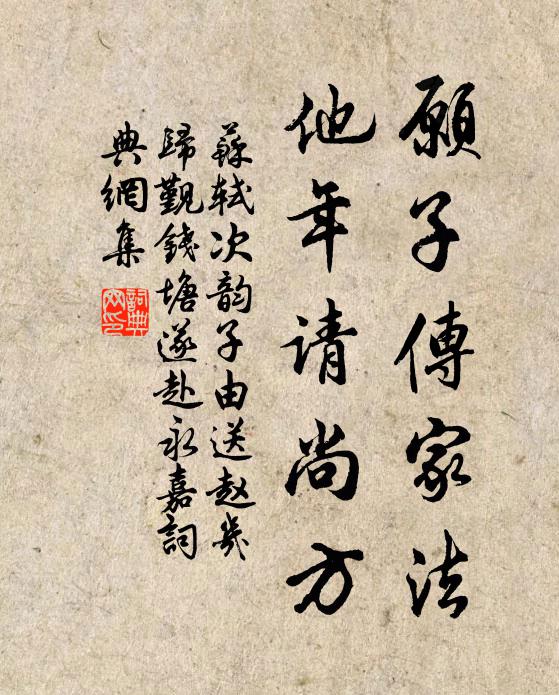 願子傳家法
他年请尚方
蘇軾次韵子由送赵㞦
歸觐錢塘遂赴永嘉詞
典網集
詞典網印